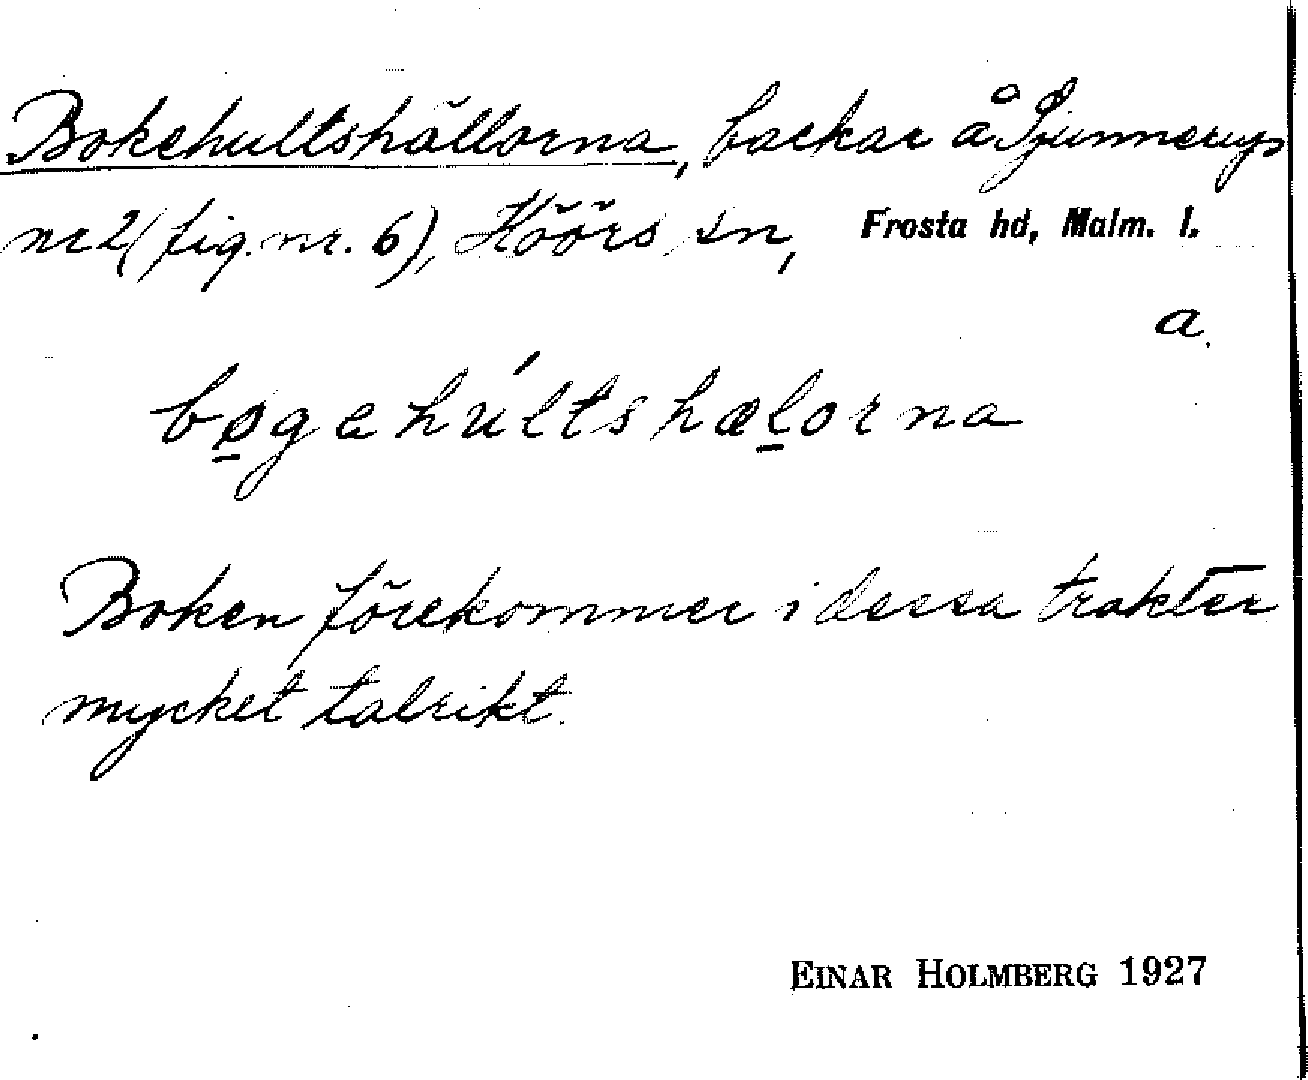 Bokehultshällorna, backar å Sjunnerups
nr 2 (fig. nr. 6), Höörs sn, Frosta hd, Malm. l.
a.
bøgehúltshælorna
Boken förekommer i dessa trakter
mycket talrikt.
EINAR HOLMBERG 1927